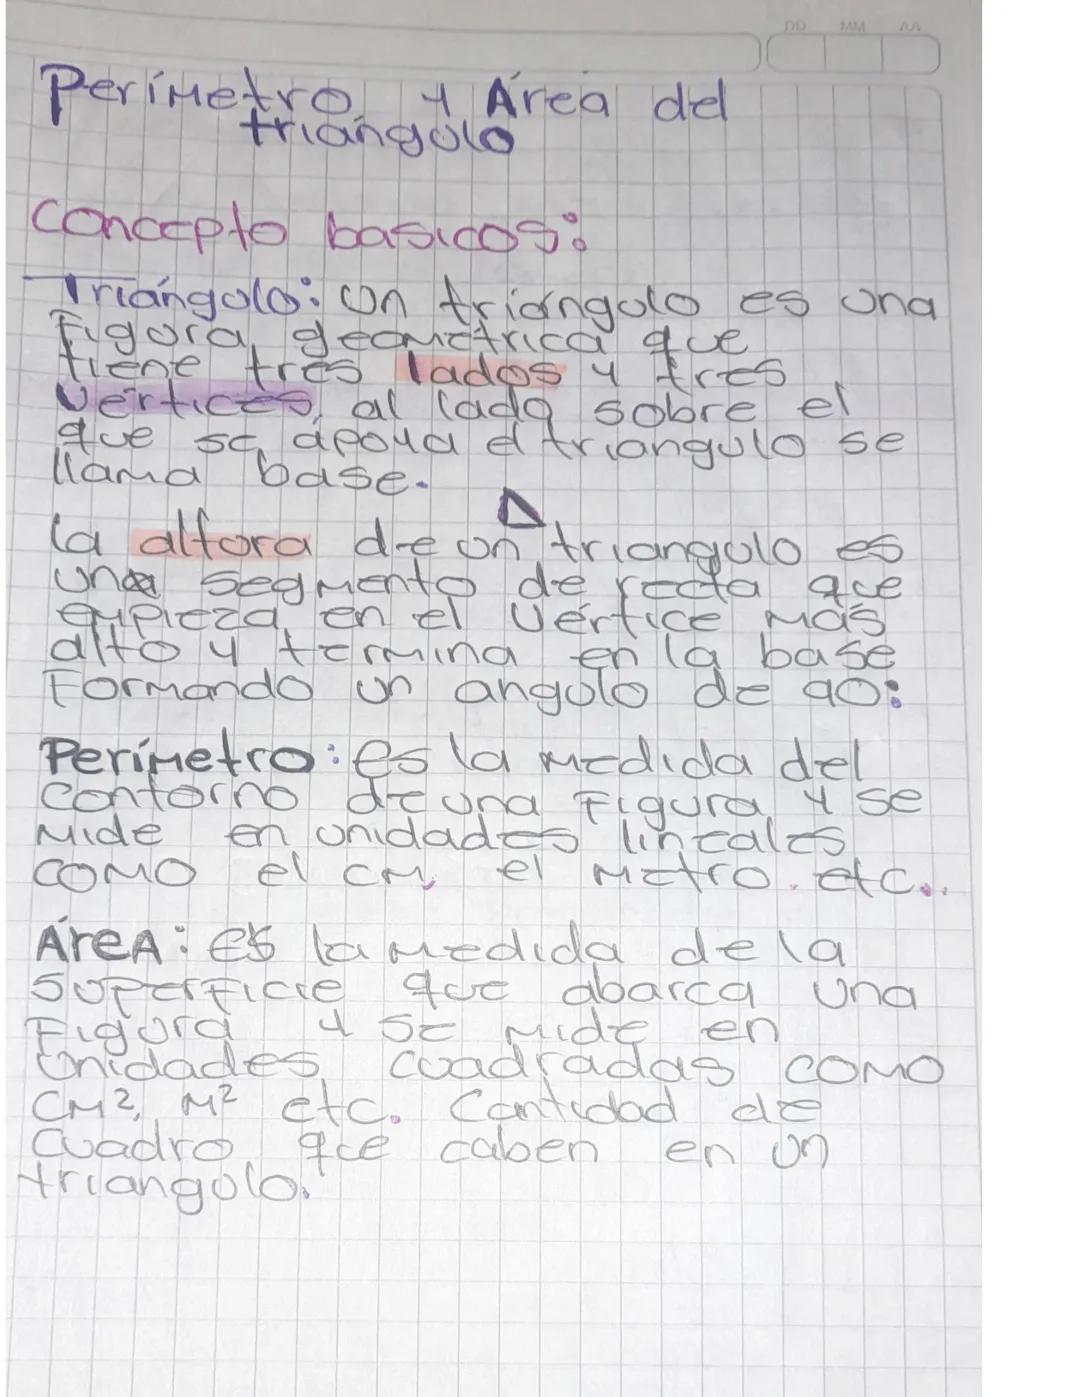 DD MM AA
Perímetro y Área del
triángulo
Concepto basicos:
Triángulo: Un triángulo es una
Figura geométrica que
tiene tres lados y tres
Vértices, al lado sobre el
que se apoya el triangulo se
llama base.
la altura de un triangulo es
una segmento de recta que
empieza en el vértice más
alto y termina en la base
Formando un angulo de 90:
Perímetro: es la medida del
contorno de una Figura y se
mide en unidades lineales
como el cm, el metro. etc..
Área: es la medida de la
superficie que abarca una
Figura y se mide en
Unidades cuadradas como
cm², m² etc. Cantidad de
cuadro que caben en un
triangulo.